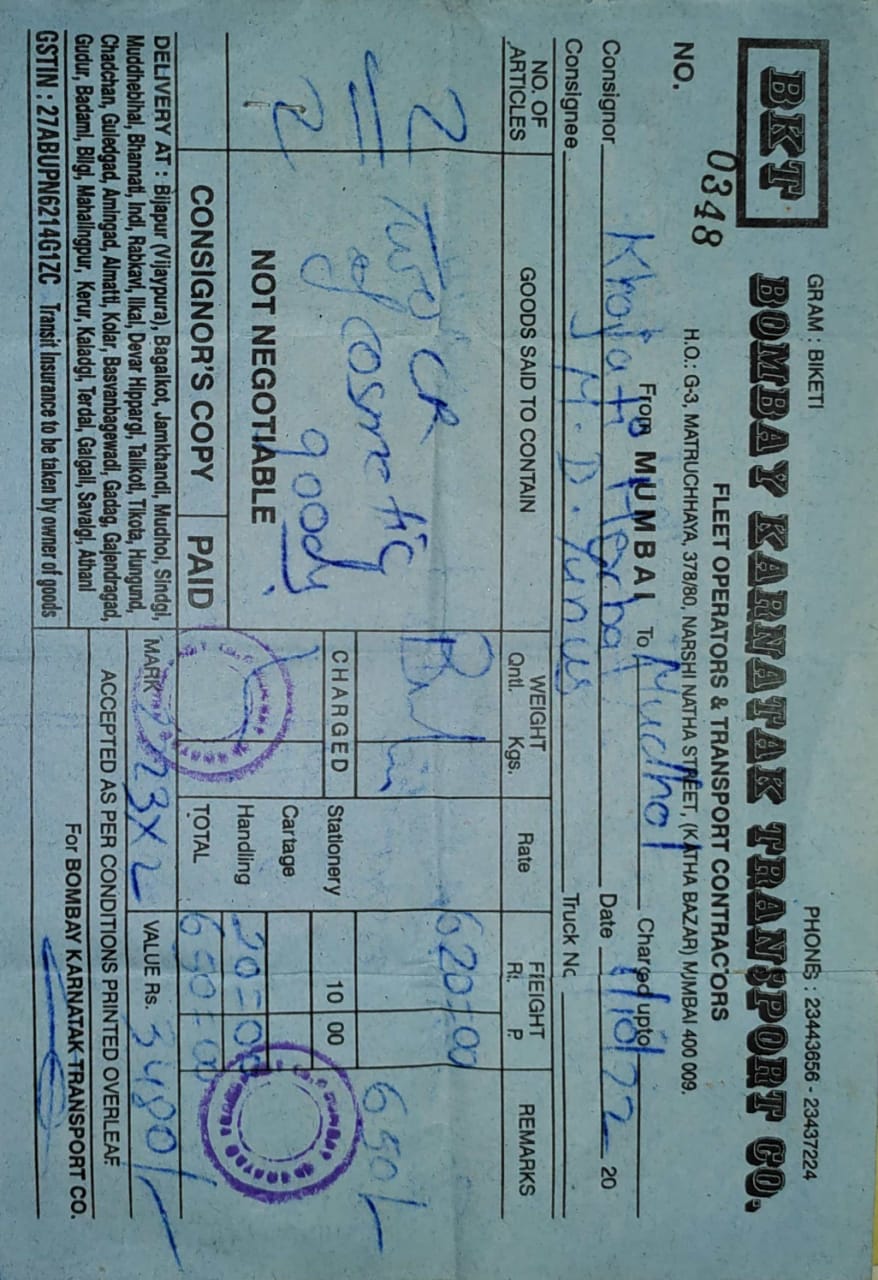 GRAM : BIKETI
PHONES : 23443656 - 23437224
BKT
BOMBAY KARNATAK TRANSPORT CO.
FLEET OPERATORS & TRANSPORT CONTRACTORS
H.O.: G-3, MATRUCHHAYA, 378/80, NARSHI NATHA STREET, (KATHA BAZAR) MUMBAI 400 009.
NO. 0348
From MUMBAI To Mudhol Charged upto
Consignor Khojati Herbal Date 1/10/22 20
Consignee M. D. Yunus Truck No
NO. OF ARTICLES
GOODS SAID TO CONTAIN
WEIGHT
Qntl. Kgs.
Rate
FREIGHT
R. P
REMARKS
2 Two CR 620=00
of cosmetic 650/-
goods
2
NOT NEGOTIABLE
CHARGED
Stationery 10 00
Cartage
Handling 20=00
TOTAL 650=00
CONSIGNOR'S COPY PAID
DELIVERY AT : Bijapur (Vijaypura), Bagalkot, Jamkhandi, Mudhol, Sindgi,
Muddhebihal, Bhannati, Indi, Rabkavi, Ilkal, Devar Hippargi, Talikoti, Tikota, Hungund,
Chadchan, Guledgad, Amingad, Almatti, Kolar, Basvanbagewadi, Gadag, Gajendragad,
Gudur, Badami, Bilgi, Mahalingpur, Kerur, Kaladgi, Terdal, Galgali, Savalgi, Athani
GSTIN : 27ABUPN6214G1ZC Transit Insurance to be taken by owner of goods
MARK 223X2 VALUE Rs. 3480/-
ACCEPTED AS PER CONDITIONS PRINTED OVERLEAF
For BOMBAY KARNATAK TRANSPORT CO.